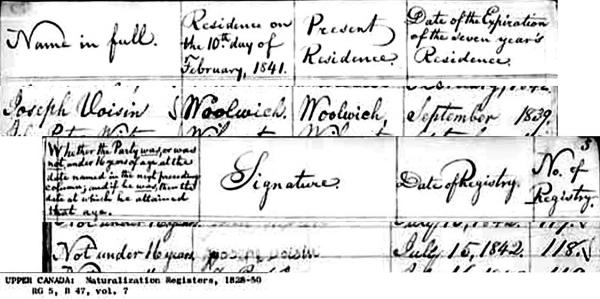 Name in full.
Residence on
the 10th day of
February, 1841.
Present
Residence.
Date of the Expiration
of the seven year's
Residence.
Joseph Voisin Woolwich. Woolwich, September 1839.
Whether the Party was, or was
not, under 16 years of age at the
date named in the next preceding
column; and if he was, then the
date at which he attained
that age.
Signature.
Date of Registry.
No. of
Registry.
Not under 16 years. Joseph Voisin July 15, 1842. 118.
UPPER CANADA: Naturalization Registers, 1828-50
RG 5, B 47, vol. 7